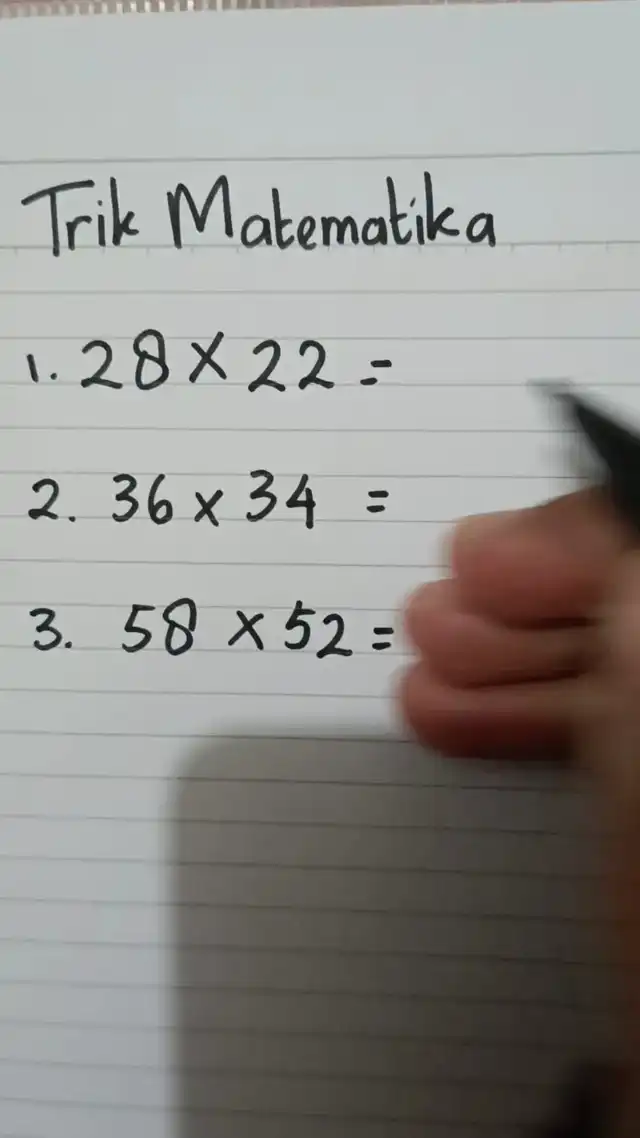 Trik Matematika
1. 28 x 22 =
2. 36 x 34 =
3. 58 x 52 =